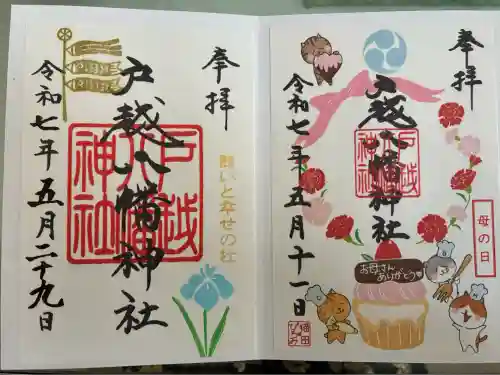 奉拝
母の日
戸越八幡神社
戸越
八幡
神社
令和七年五月十一日
お母さん
ありがとう
奉拝
願いと幸せの社
戸越八幡神社
戸越
八幡
神社
令和七年五月二十九日